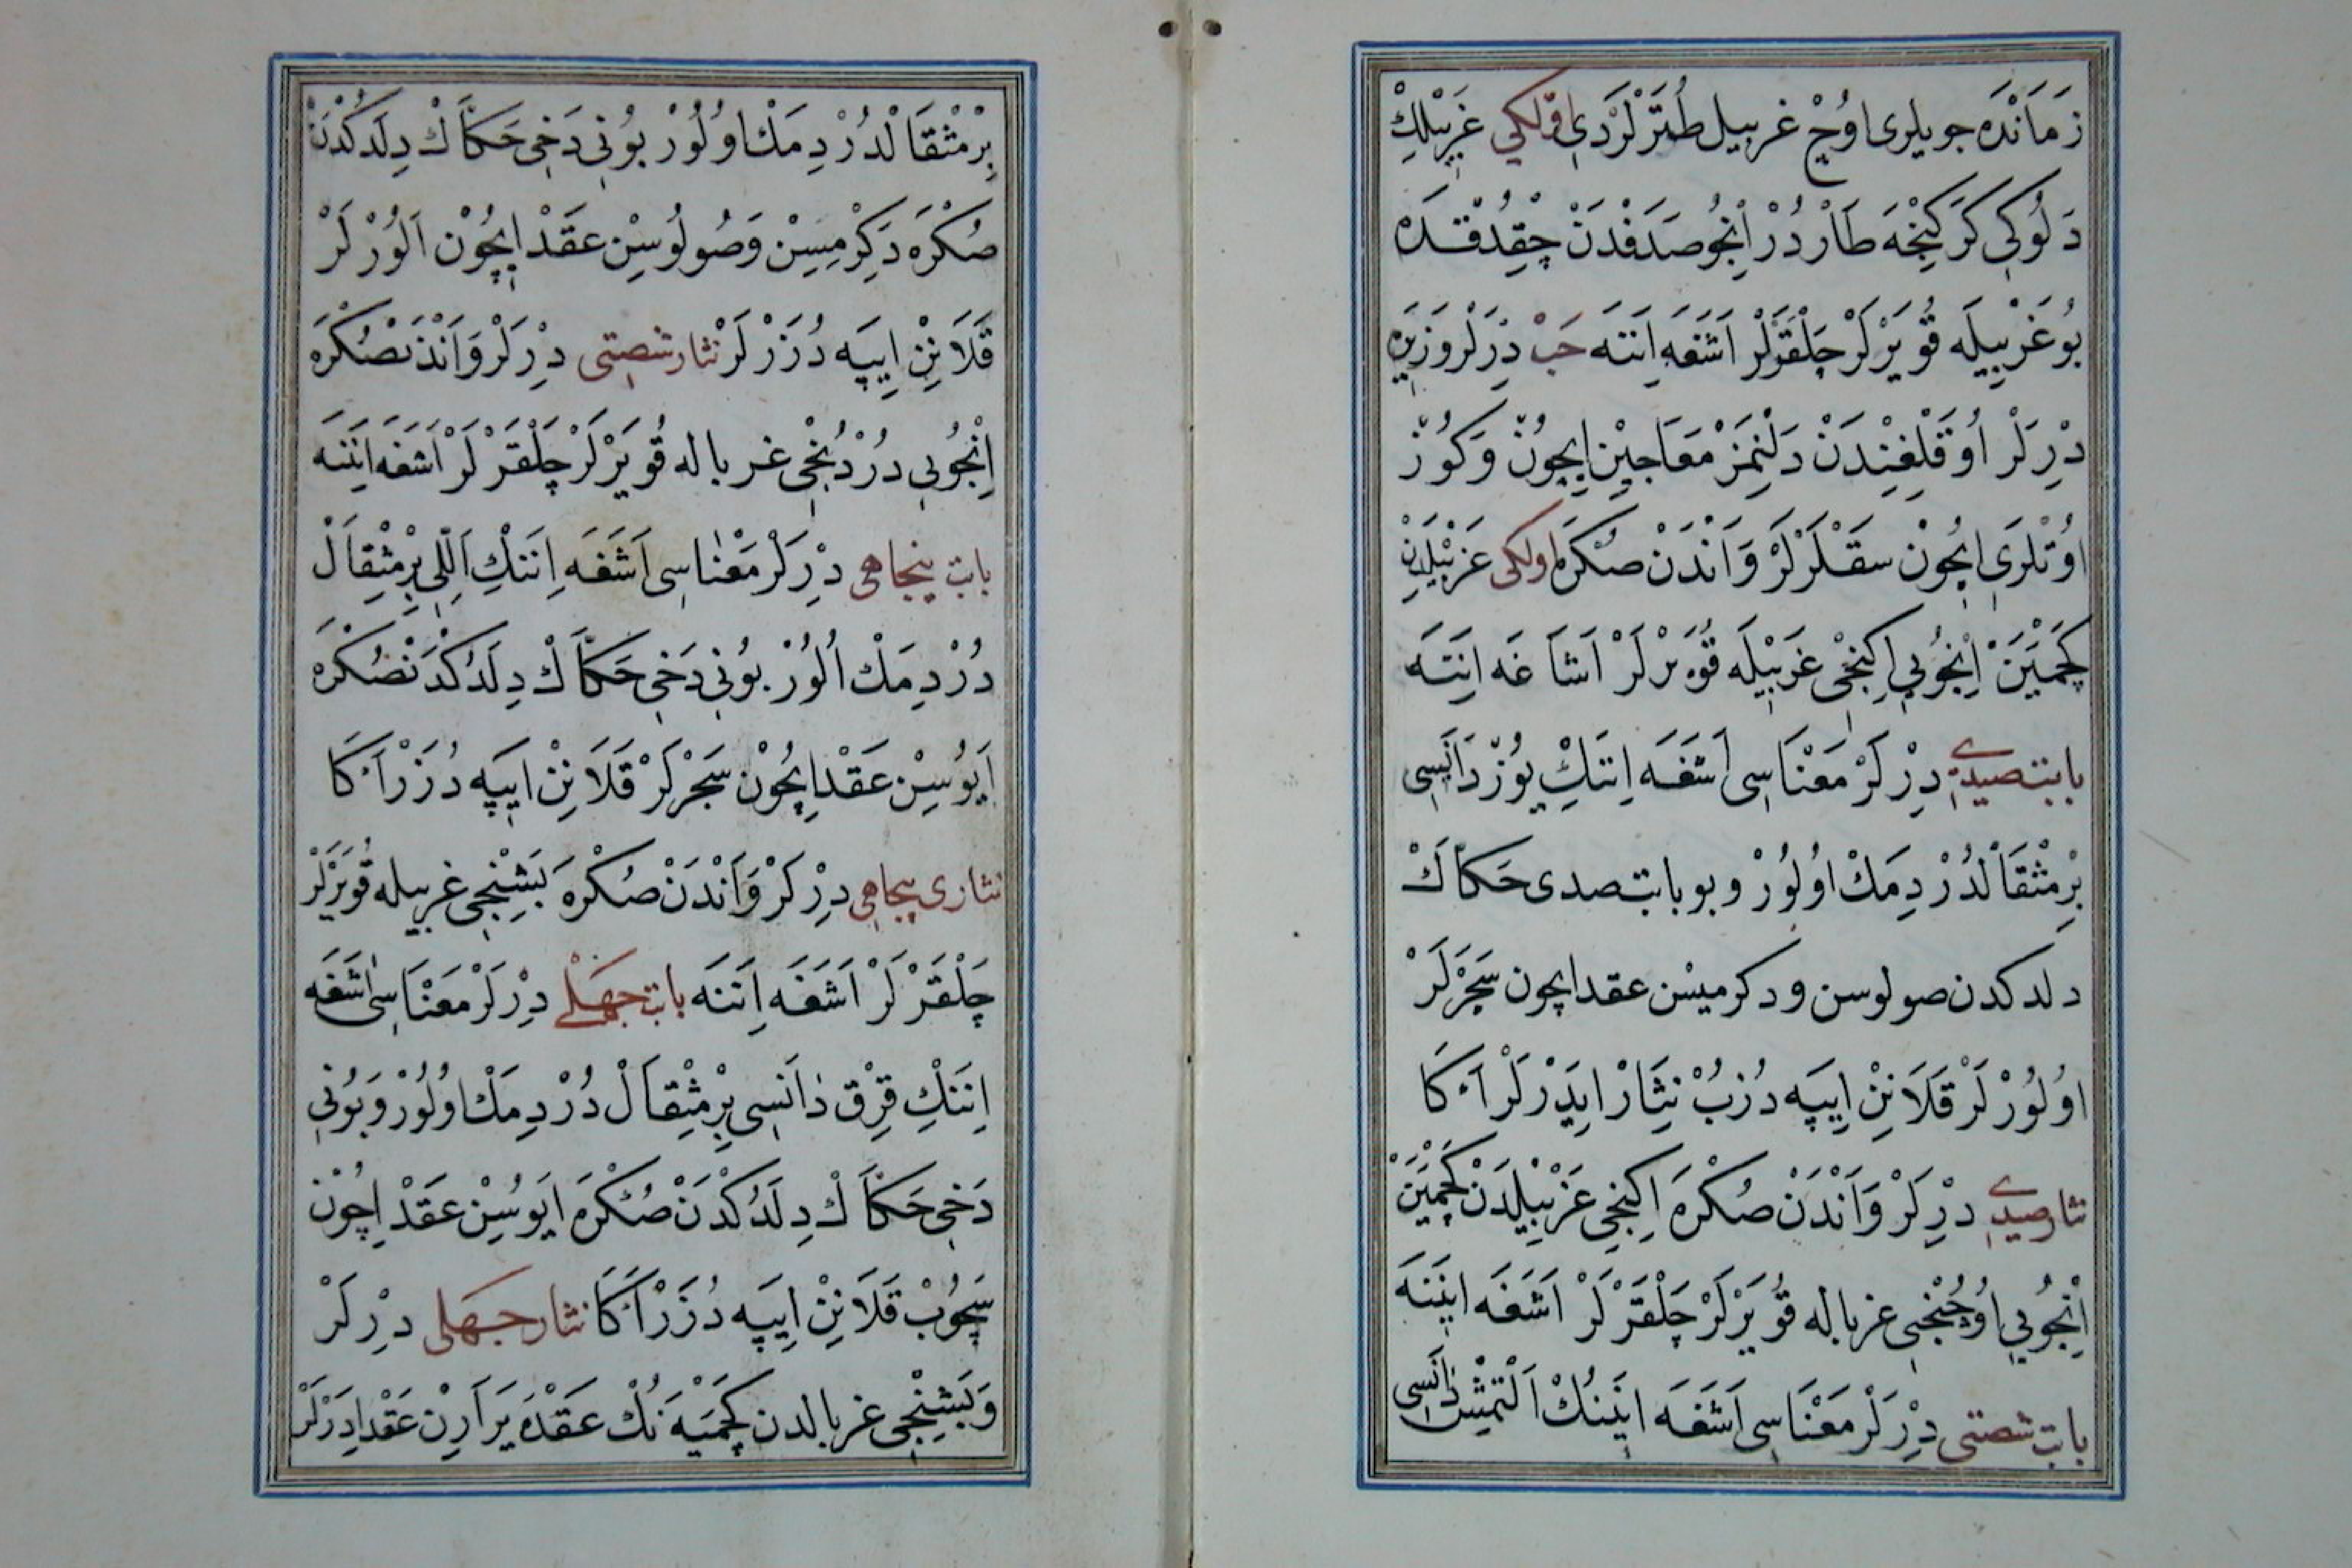 زَمَانْدَه جوبلری اوُچْ غربيل طُتَرْلَرْدِي اوّلكي غَرْبِيلِكْ
دَلُوكِي كَرَكِنْجَه طَارْدُرْ اِنْجُو صَدَفْدَنْ چِقِدُقْدَه
بُو غَرْبِيلَه قُويَرْلَرْ چَلْقَرْلَرْ اَشَغَه اِنَنَه حَبْ دِرْلَرْ وَزِيرَه
دِرْلَرْ اُوَقْلِغِنْدَنْ دَلْنِمَزْ مَعَاجِيْن اِيچُونْ وَكُوزْ
اوُتْلَرِي اِيچُونْ سَقْلَرْلَرْ وَاَنْدَنْ صُكْرَه اولكی غَرْبِيلْدَنْ
كَچْمِيَنْ اِنْجُويِي اِكِنْجِي غَرْبِيلَه قُويَرْلَرْ اَشَاغَه اِنَنَه
بابت صدي دِرْلَرْ مَعْنَاسِي اَشَغَه اِنَنِكْ يُوزْ دَانَسِي
بِرْمِثْقَالْدُرْ دِمَكْ اوُلُورْ وبو بابت صدی حَكَّاكْ
دلدكدن صولوسن ودكرميسْن عقد ايچون سَچَرْلَرْ
اوُلُورْلَرْ قَلَانِنْ اِيپَه دُزُبْ نِثَارْ اِيدَرْلَرْ اَكَا
نثار صدي دِرْلَرْ وَاَنْدَنْ صُكْرَه اِكِنْجِي غَرْبِيلْدَنْ كَچْمِيَنْ
اِنْجُويِي اوُچُنْجِي غرباله قُويَرْلَرْ چَلْقَرْلَرْ اَشَغَه اِنَنَه
بابت شصتی دِرْلَرْ مَعْنَاسِي اَشَغَه اِنَنُكْ اَلْتْمِشْ دَانَسِي
بِرْمِثْقَالْدُرْ دِمَكْ اوُلُورْ بُونِي دَخِي حَكَّاكْ دِلَدُكْدَنْ
صُكْرَه دَكِرْمِسِنْ وَصُولُوسِنْ عَقْدْ اِيچُونْ اَلُورْلَرْ
قَلَانِنْ اِيپَه دُزَرْلَرْ نثار شصتی دِرْلَرْ وَاَنْدَنْصُكْرَه
اِنْجُويِي دُرْدُنْجِي غرباله قُويَرْلَرْ چَلْقَرْلَرْ اَشَغَه اِنَنَه
بابت پنجاهی دِرْلَرْ مَعْنَاسِي اَشَغَه اِنَنِكْ اَللِّي بِرْمِثْقَالْ
دُرْ دِمَكْ اُلُورْ بُونِي دَخِي حَكَّاكْ دِلَدُكْدَنْصُكْرَه
اَيُوسِنْ عَقْدْ اِيچُونْ سَچَرْلَرْ قَلَانِنْ اِيپَه دُزَرْ اَكَا
نثاری پنجاهی دِرْلَرْ وَاَنْدَنْ صُكْرَه بَشِنْجِي غربيله قُويَرْلَرْ
چَلْقَرْلَرْ اَشَغَه اِنَنَه بابت چهلي دِرْلَرْ مَعْنَاسِي اَشَغَه
اِنَنِكْ قِرْقْ دَانَسِي بِرْمِثْقَالْ دُرْ دِمَكْ اوُلُورْ وَبُونِي
دَخِي حَكَّاكْ دِلَدُكْدَنْ صُكْرَه اَيُوسِنْ عَقْدْ اِيچُونْ
سَچُوبْ قَلَانِنْ اِيپَه دُزَرْ اَكَا نثار چهلی دِرْلَرْ
وَبَشِنْجِي غربالدن كَچْمِيَه نُكْ عَقْدَه يَرَارِنْ عَقْدْ اِدَرْلَرْ